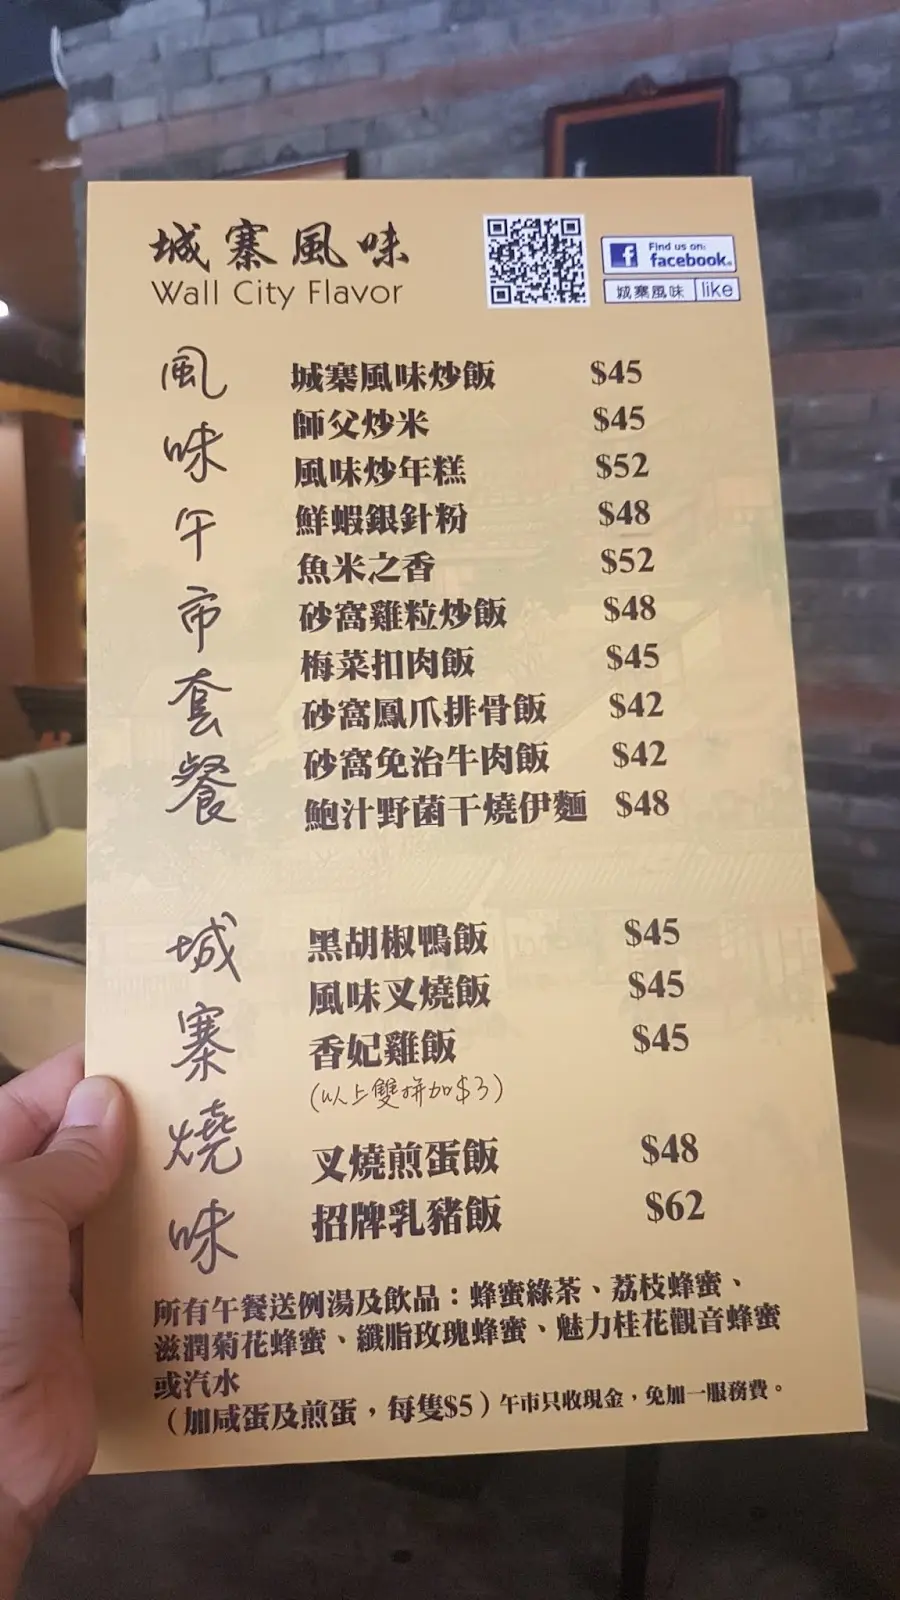 城寨風味
Wall City Flavor
Find us on:
facebook.
城寨風味 like
風味午市套餐
城寨風味炒飯 $45
師父炒米 $45
風味炒年糕 $52
鮮蝦銀針粉 $48
魚米之香 $52
砂窩雞粒炒飯 $48
梅菜扣肉飯 $45
砂窩鳳爪排骨飯 $42
砂窩免治牛肉飯 $42
鮑汁野菌干燒伊麵 $48
城寨燒味
黑胡椒鴨飯 $45
風味叉燒飯 $45
香妃雞飯 $45
(以上雙拼加$3)
叉燒煎蛋飯 $48
招牌乳豬飯 $62
所有午餐送例湯及飲品：蜂蜜綠茶、荔枝蜂蜜、
滋潤菊花蜂蜜、纖脂玫瑰蜂蜜、魅力桂花觀音蜂蜜
或汽水
（加咸蛋及煎蛋，每隻$5）午市只收現金，免加一服務費。